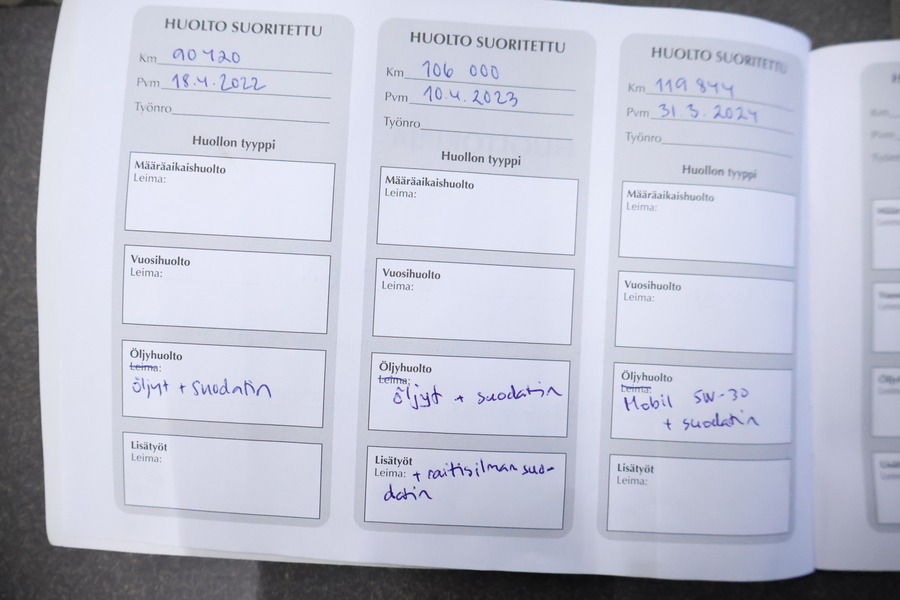 HUOLTO SUORITETTU
Km 90 420
Pvm 18.4.2022
Työnro
Huollon tyyppi
Määräaikaishuolto
Leima:
Vuosihuolto
Leima:
Öljyhuolto
Leima:
öljyt + suodatin
Lisätyöt
Leima:
HUOLTO SUORITETTU
Km 106 000
Pvm 10.4.2023
Työnro
Huollon tyyppi
Määräaikaishuolto
Leima:
Vuosihuolto
Leima:
Öljyhuolto
Leima:
öljyt + suodatin
Lisätyöt
Leima: + raitisilman suo-
datin
HUOLTO SUORITETTU
Km 119 844
Pvm 31.3.2024
Työnro
Huollon tyyppi
Määräaikaishuolto
Leima:
Vuosihuolto
Leima:
Öljyhuolto
Leima:
Mobil 5W-30
+ suodatin
Lisätyöt
Leima: